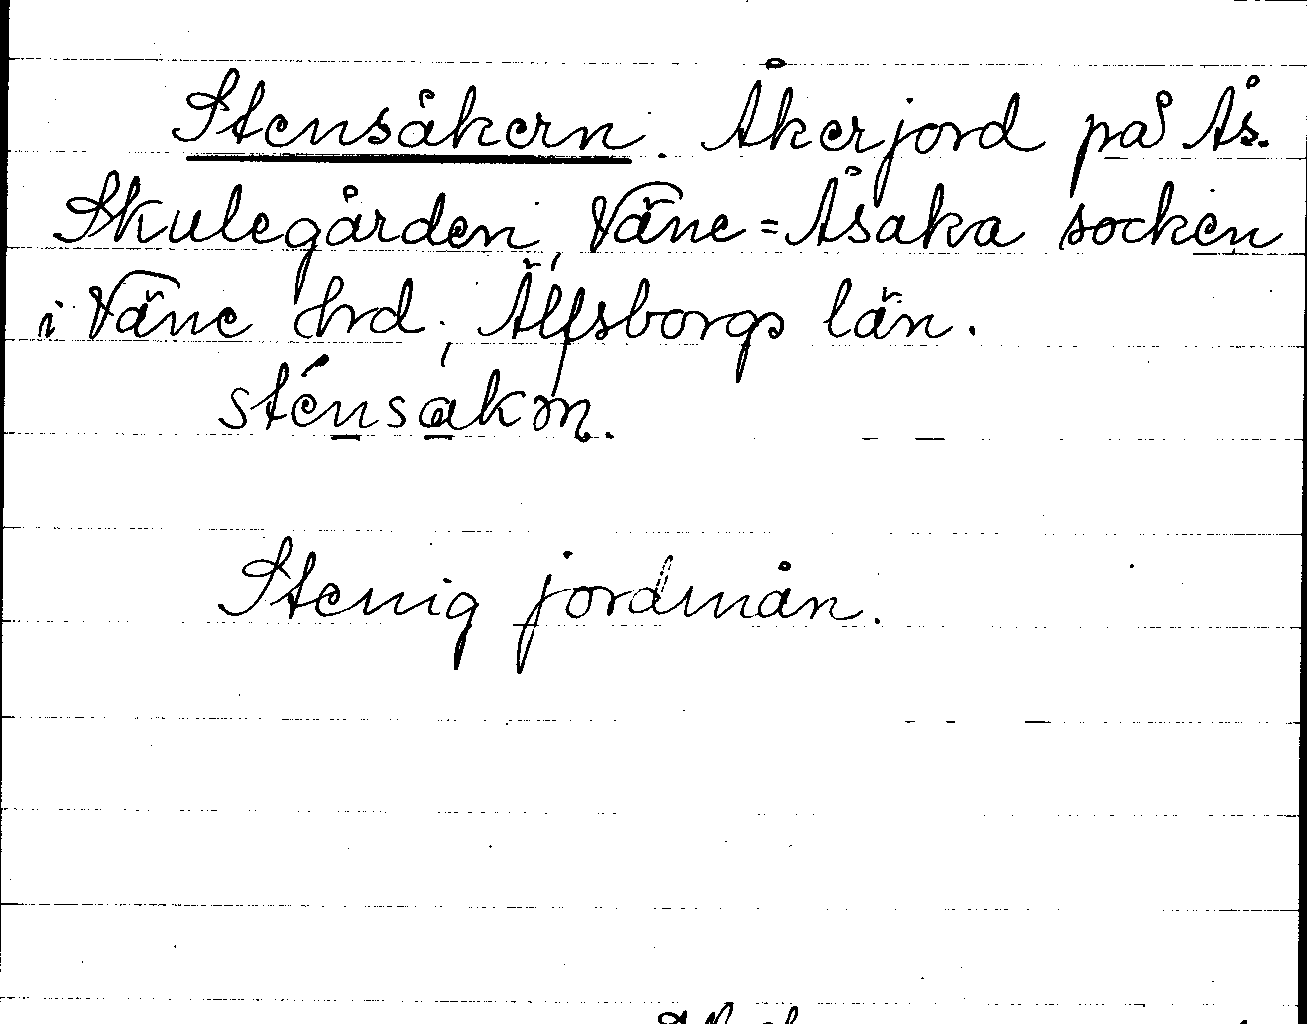 Stensåkern. Åkerjord på Ås.
Skulegården, Väne=Åsaka socken
i Väne hrd, Älfsborgs län.
Stenig jordmån.